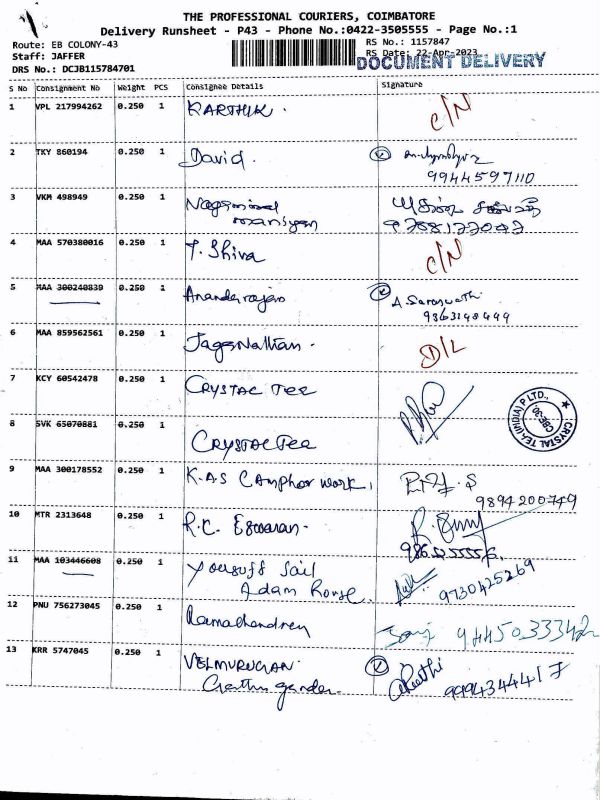 THE PROFESSIONAL COURIERS, COIMBATORE
Delivery Runsheet - P43 - Phone No.:0422-3505555 - Page No.:1
Route: EB COLONY-43
RS No.: 1157847
Staff: JAFFER
RS Date: 22-Apr-2023
DOCUMENT DELIVERY
DRS No.: DCJB115784701
S No Consignment No Weight PCS Consignee Details Signature
1 VPL 217994262 0.250 1 KARTHIK. C/N
2 TKY 860194 0.250 1 David.
9944597110
3 VKM 498949 0.250 1
4 MAA 570380016 0.250 1 T. Shiva C/N
5 MAA 300240839 0.250 1 Anandarajan A. Saraswathi
9363148499
6 MAA 859562561 0.250 1 Jagannathan. D/L
7 KCY 60542478 0.250 1 CRYSTAL TEE
CRYSTAL TEA (INDIA) P LTD., CBE-30. ★
8 SVK 65070881 0.250 1 CRYSTAL TEE
9 MAA 300178552 0.250 1 K.A.S Camphor work,
9894200749
10 MTR 2313648 0.250 1 R.C. Eswaran.
11 MAA 103446608 0.250 1 Yousuff Sait
Adam House. 9730425269
12 PNU 756273045 0.250 1 Ramachandren 9445033342
13 KRR 5747045 0.250 1 VELMURUGAN
garden. 9994344417